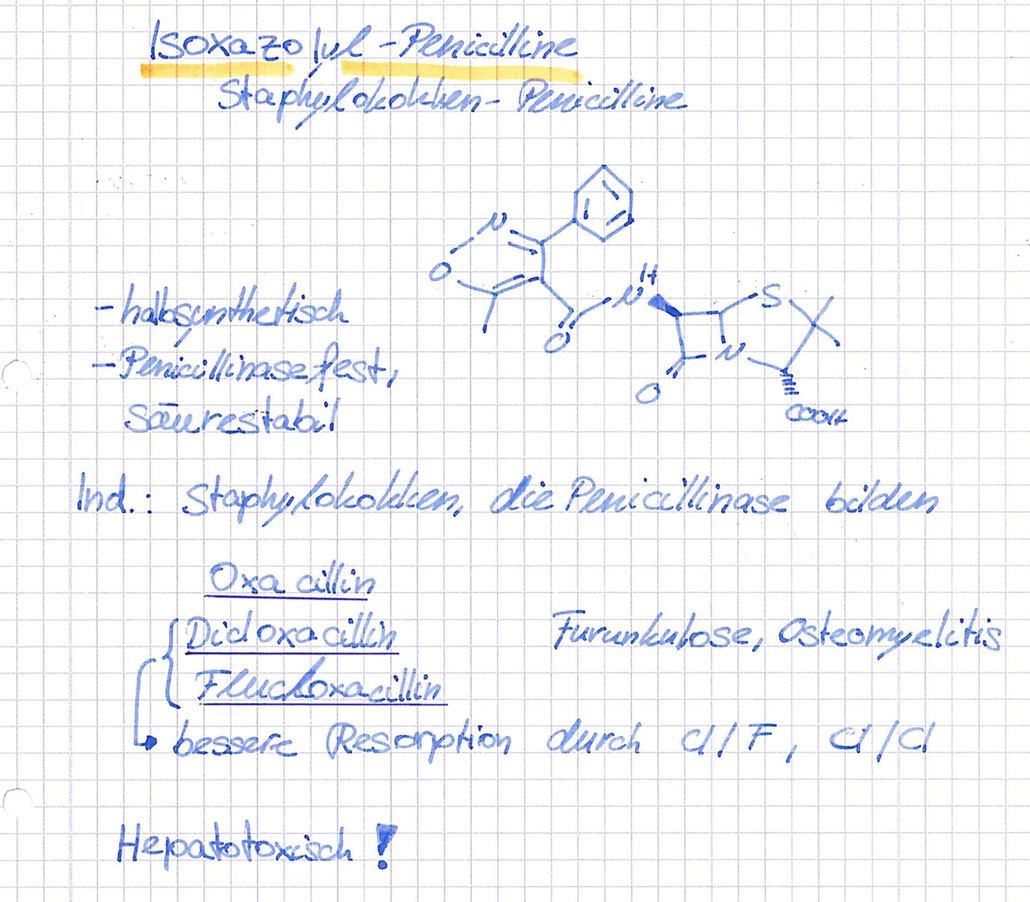 Isoxazolyl-Penicilline
Staphylokokken-Penicilline
N
O
O
N
H
S
N
O
COOH
- halbsynthetisch
- Penicillinasefest,
säurestabil
Ind.: Staphylokokken, die Penicillinase bilden
Oxacillin
Dicloxacillin
Furunkulose, Osteomyelitis
Flucloxacillin
bessere Resorption durch Cl/F, Cl/Cl
Hepatotoxisch!